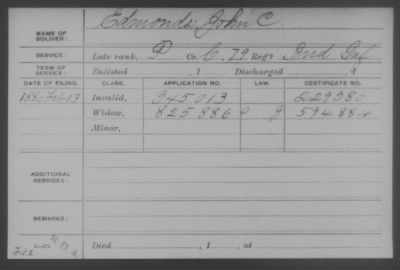 NAME OF SOLDIER: Edmonds, John C.
SERVICE: Late rank, P Co. C. 79 Reg't Ind Inf
TERM OF SERVICE: Enlisted , 1 Discharged , 1
DATE OF FILING. CLASS. APPLICATION NO. LAW. CERTIFICATE NO.
1880 Feb 13 Invalid, 345013
Widow, 825886
Minor,
ADDITIONAL SERVICES:
REMARKS:
Died , 1 , at